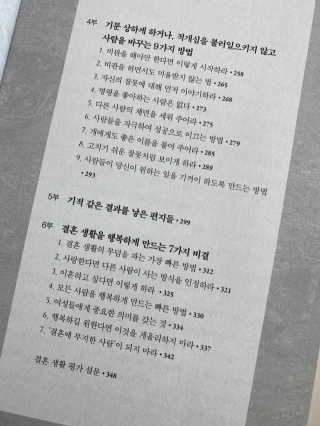 4부 기분 상하게 하거나, 적개심을 불러일으키지 않고
사람을 바꾸는 9가지 방법
1. 비판을 해야만 한다면 이렇게 시작하라 • 258
2. 비판을 하면서도 미움받지 않는 법 • 265
3. 자신의 잘못에 대해 먼저 이야기하라 • 268
4. 명령을 좋아하는 사람은 없다 • 273
5. 다른 사람의 체면을 세워 주어라 • 275
6. 사람들을 자극하여 성공으로 이끄는 방법 • 279
7. 개에게도 좋은 이름을 붙여 주어라 • 285
8. 고치기 쉬운 잘못처럼 보이게 하라 • 289
9. 사람들이 당신이 원하는 일을 기꺼이 하도록 만드는 방법
• 293
5부 기적 같은 결과를 낳은 편지들 • 299
6부 결혼 생활을 행복하게 만드는 7가지 비결
1. 결혼 생활의 무덤을 파는 가장 빠른 방법 • 312
2. 사랑한다면 다른 사람이 사는 방식을 인정하라 • 321
3. 이혼하고 싶다면 이렇게 하라 • 325
4. 모든 사람을 행복하게 만드는 빠른 방법 • 330
5. 여성들에게 중요한 의미를 갖는 것 • 334
6. 행복하길 원한다면 이것을 게을리하지 마라 • 337
7. '결혼에 무지한 사람'이 되지 마라 • 342
결혼 생활 평가 설문 • 348